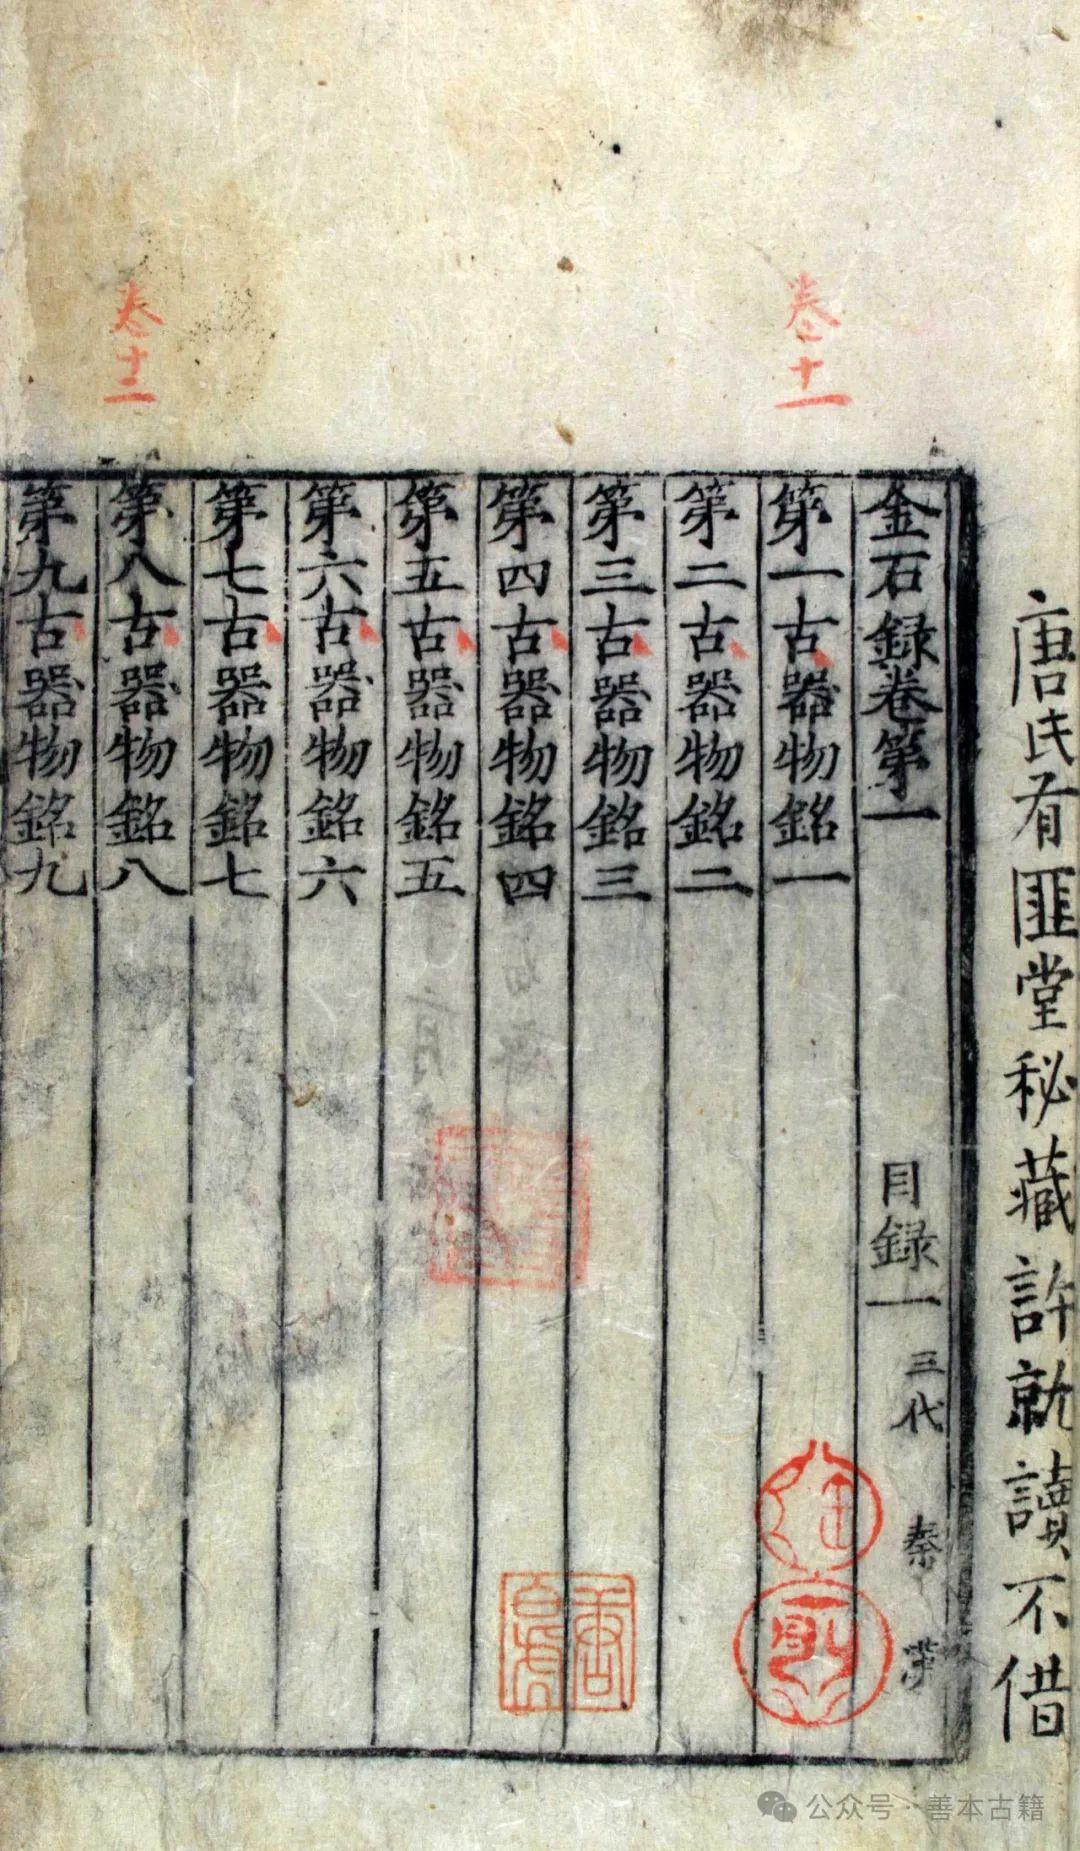 唐氏有匪堂秘藏許就讀不借
卷十一
卷十二
金石録卷第一
目録一 三代 秦 漢
第一古器物銘一
第二古器物銘二
第三古器物銘三
第四古器物銘四
第五古器物銘五
第六古器物銘六
第七古器物銘七
第八古器物銘八
第九古器物銘九
公众号·善本古籍